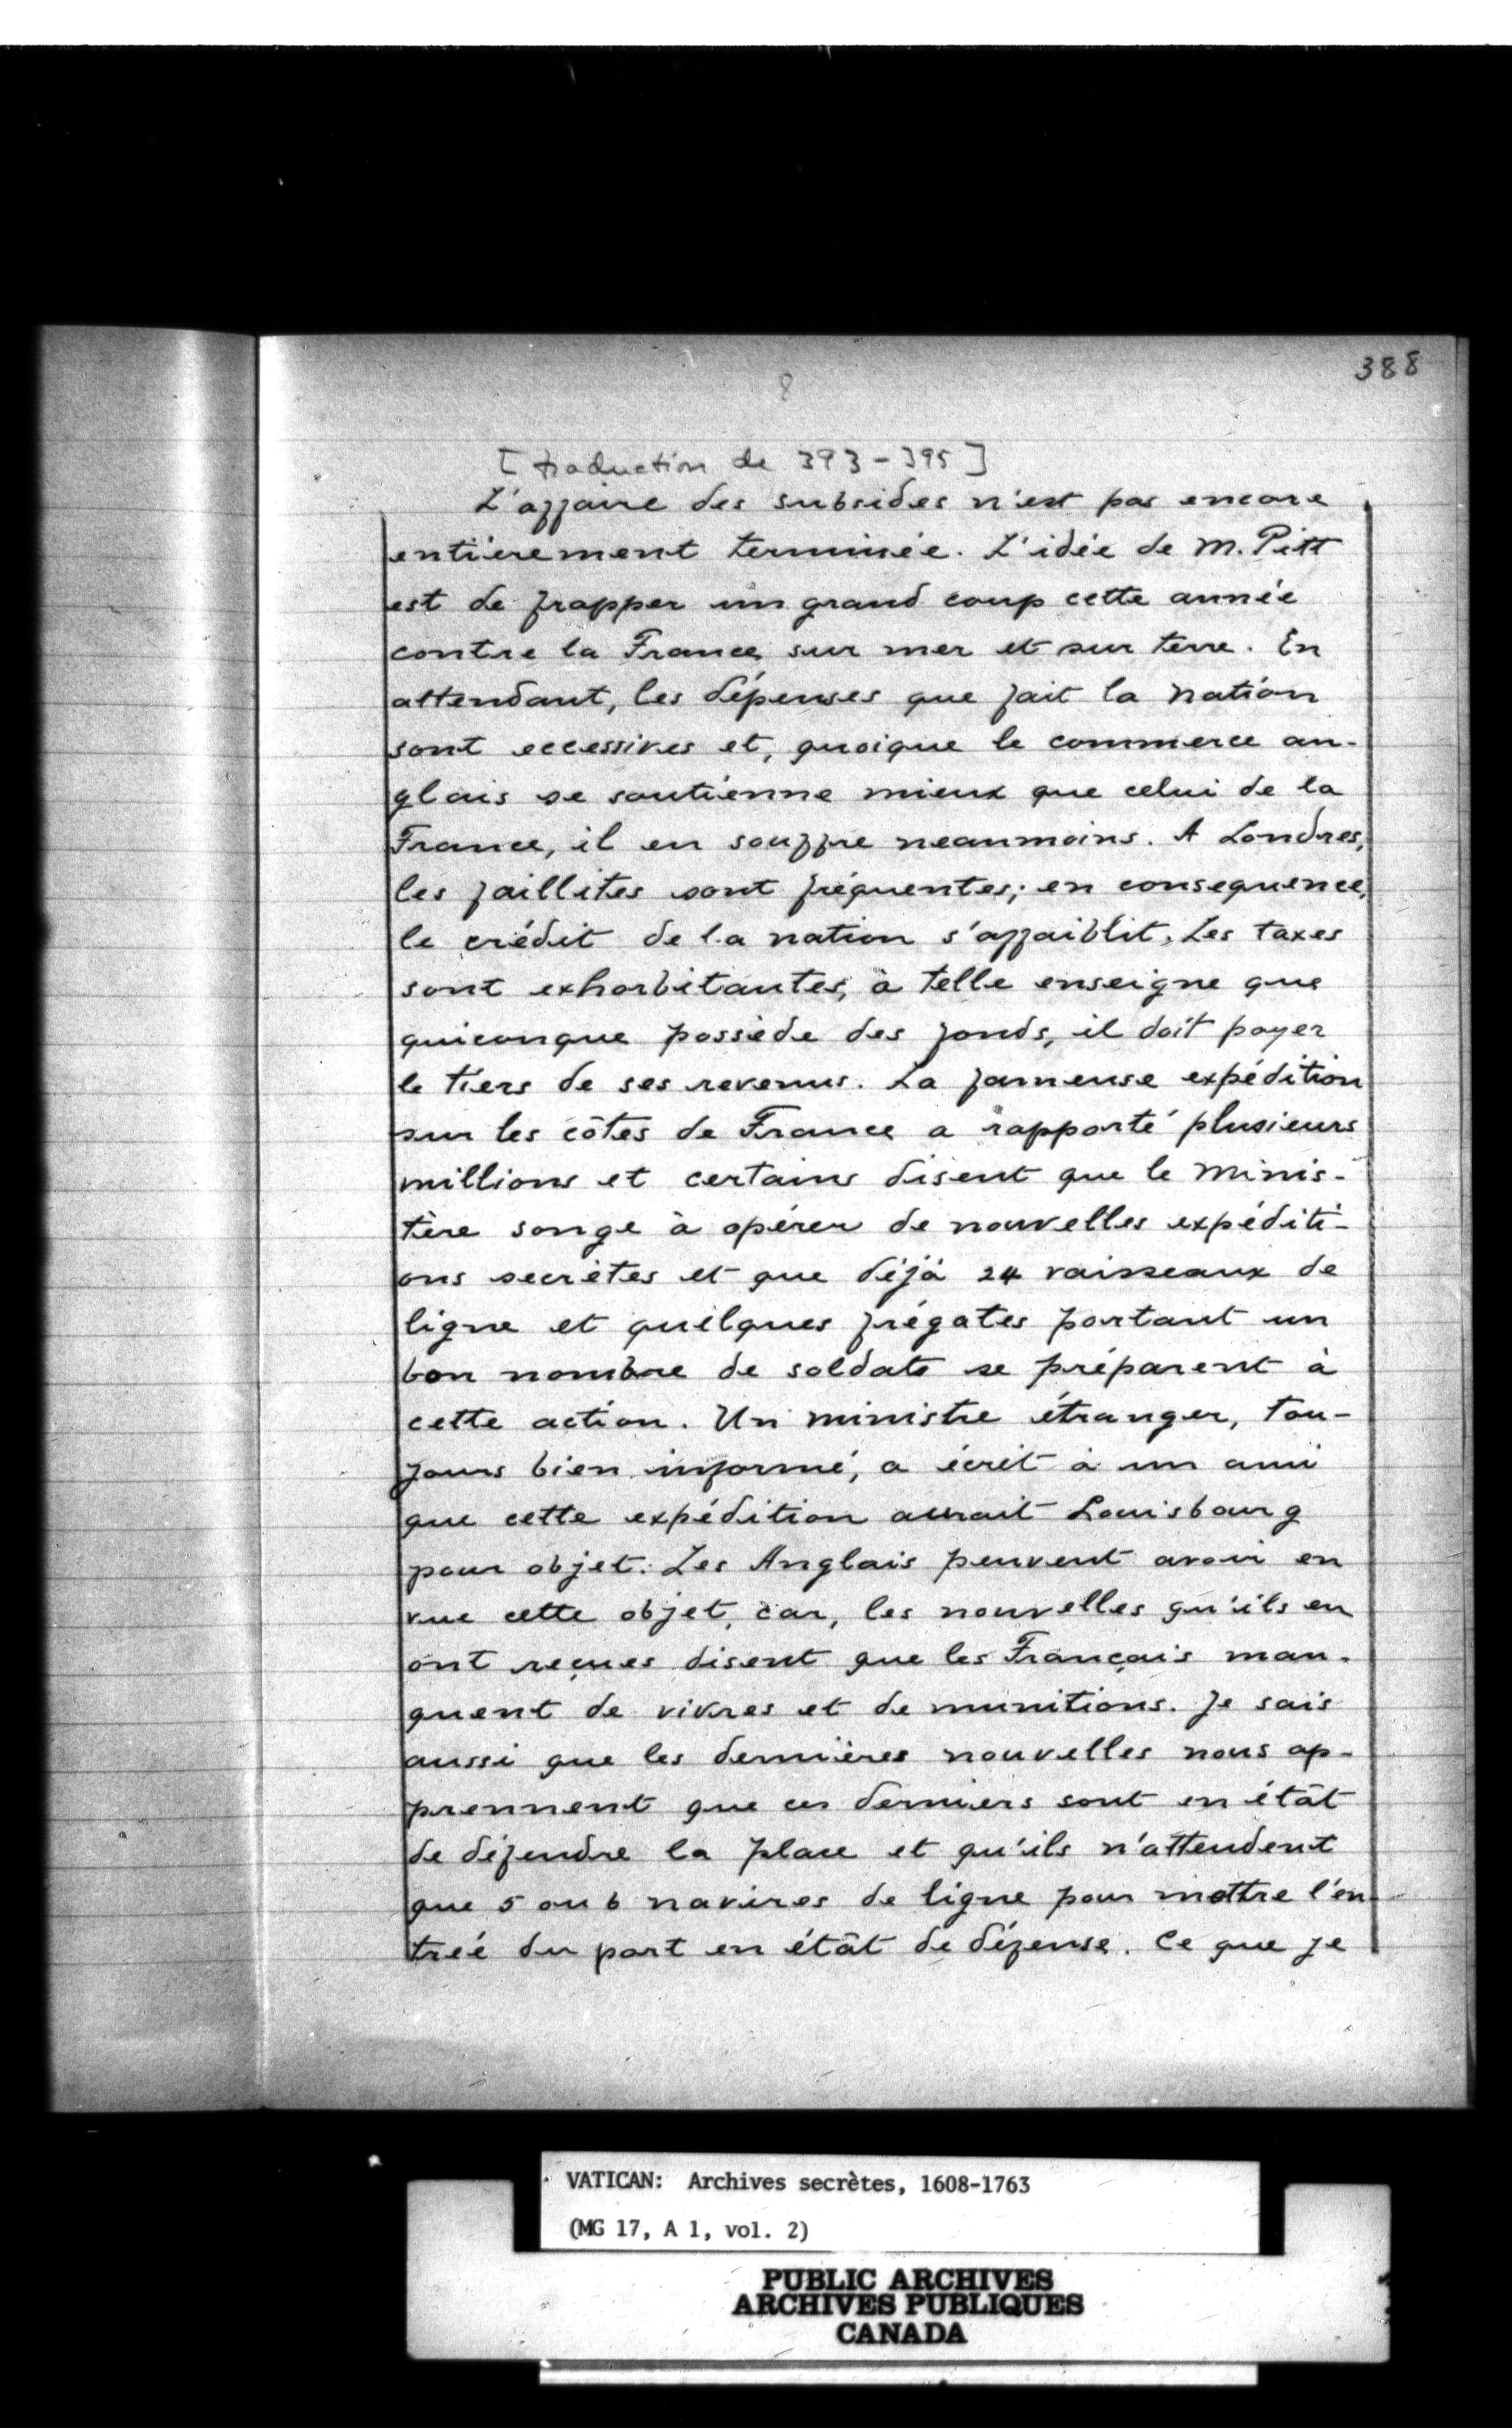 388
8
[traduction de 393-395]
L'affaire des subsides n'est pas encore
entièrement terminée. L'idée de M. Pitt
est de frapper un grand coup cette année
contre la France, sur mer et sur terre. En
attendant, les dépenses que fait la nation
sont eccessives et, quoique le commerce an-
glais se soutienne mieux que celui de la
France, il en souffre neanmoins. A Londres,
les faillites sont fréquentes; en consequence,
le crédit de la nation s'affaiblit. Les taxes
sont exhorbitantes, à telle enseigne que
quiconque possède des fonds, il doit payer
le tiers de ses revenus. La fameuse expédition
sur les côtes de France a rapporté plusieurs
millions et certains disent que le Minis-
tère songe à opérer de nouvelles expéditi-
ons secrètes et que déjà 24 vaisseaux de
ligne et quelques frégates portant un
bon nombre de soldats se préparent à
cette action. Un ministre étranger, tou-
jours bien informé, a écrit à un ami
que cette expédition aurait Louisbourg
pour objet. Les Anglais peuvent avoir en
vue cette objet, car, les nouvelles qu'ils en
ont reçues disent que les Français man-
quent de vivres et de munitions. Je sais
aussi que les dernières nouvelles nous ap-
prennent que ces derniers sont en étât
de défendre la place et qu'ils n'attendent
que 5 ou 6 navires de ligne pour mettre l'en-
trée du port en étât de défense. Ce que je
VATICAN: Archives secrètes, 1608-1763
(MG 17, A 1, vol. 2)
PUBLIC ARCHIVES
ARCHIVES PUBLIQUES
CANADA